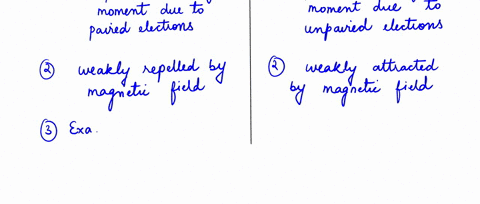 moment due to
paired elections
② weakly repelled by
magnetic field
③ Exa.
moment due to
unpaired elections
② weakly attracted
by magnetic field